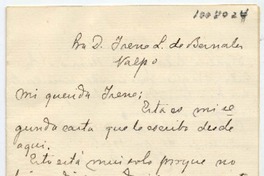 1008024
Sra D. Irene L. de Bernales
Valpo
Mi querida Irene;
Esta es mi se
gunda carta que te escribo desde
aquí.
Esto está mui solo porque no